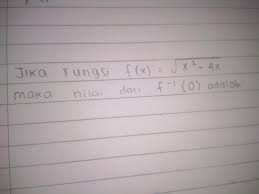 Jika Fungsi f(x) = √x² - 4x
maka nilai dari f⁻¹ (0) adalah